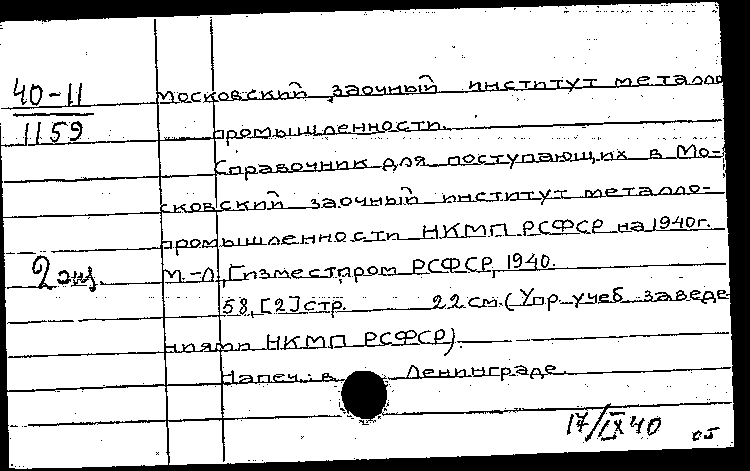 40-11
1159
Московский заочный институт металло
промышленности.
Справочник для поступающих в Мо-
сковский заочный институт металло-
промышленности НКМП РСФСР на 1940г.
М.-Л., Гизместпром РСФСР, 1940.
2 экз.
58, [2] стр. 22 см. (Упр учеб. заведе
ниями НКМП РСФСР).
Напеч. в Ленинграде.
17/IX 40